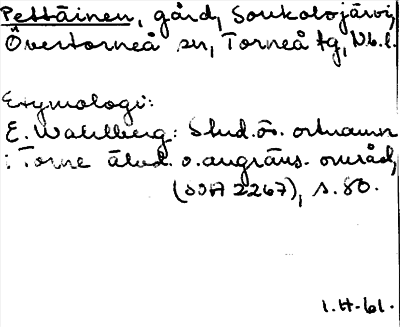 Pettäinen, gård, Soukolojärvi,
Övertorneå sn, Torneå tg, Nb.l.
Etymologi:
E. Wahlberg: Stud. öv. ortnamn
i Torne älvd. o. angräns. områd,
(OSA 2267), s. 80.
1.H.61.